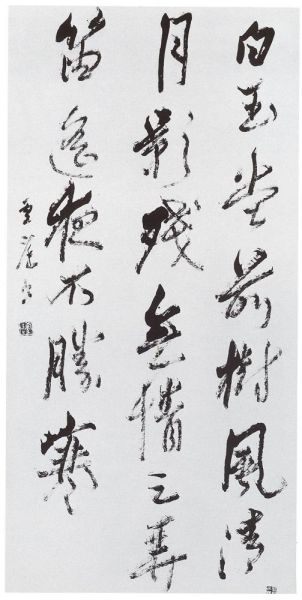 白玉堂前樹風清
月影殘無情三弄
笛遙夜不勝寒